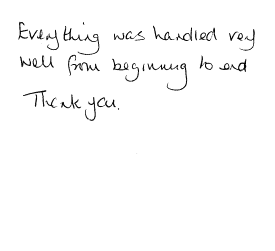 Everything was handled very
well from beginning to end
Thank you.